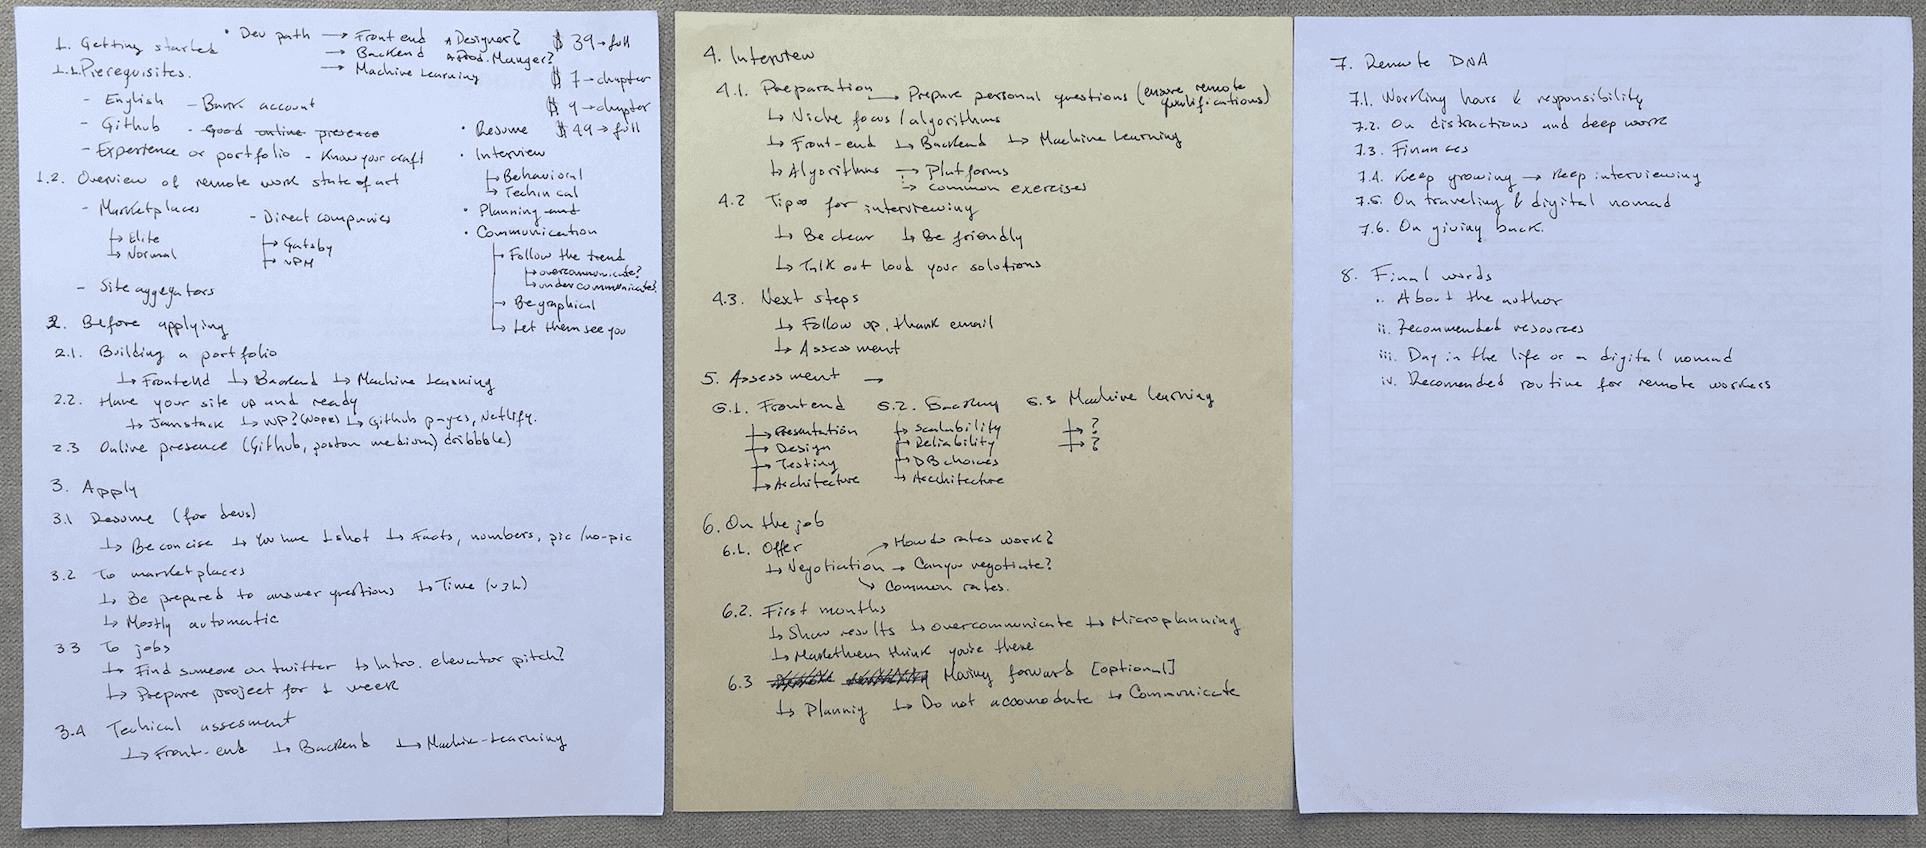 1. Getting started
• Dev path → Front end
→ Backend
→ Machine Learning
Designer?
Manger?
$ 39 → full
$ 7 → chapter
$ 9 → chapter
$ 49 → full
1.1. Prerequisites.
- English - Bank account
- Github - Good online presence
- Experience or portfolio - Know your craft
1.2. Overview of remote work state of art
- Marketplaces
↳ Elite
↳ Normal
- Direct companies
↳ Gatsby
↳ NPM
- Site aggregators
• Resume
• Interview
↳ Behavioral
↳ Techincal
• Planning and
• Communication
→ Follow the trend
↳ overcommunicate?
↳ undercommunicate?
→ Be graphical
↳ Let them see you
2. Before applying
2.1. Building a portfolio
↳ Frontend ↳ Backend ↳ Machine Learning
2.2. Have your site up and ready
↳ Jamstack ↳ WP? (Nope) ↳ Github pages, Netlify.
2.3 Online presence (Github, medium) dribbble)
3. Apply
3.1 Resume (for devs)
↳ Be concise ↳ You have 1 shot ↳ Facts, numbers, pic/no-pic
3.2 To marketplaces
↳ Be prepared to answer questions ↳ Time
↳ Mostly automatic
3.3 To jobs
↳ Find someone on twitter ↳ Intro. elevator pitch?
↳ Prepare project for 1 week
3.4 Techical assesment
↳ Front-end ↳ Backend ↳ Machine-Learning
4. Interview
4.1. Preparation → Prepare personal questions (ensure remote
qualifications)
↳ Niche focus / algorithms
↳ Front-end ↳ Backend ↳ Machine Learning
↳ Algorithms → Platforms
↳ Common exercises
4.2 Tips for interviewing
↳ Be clear ↳ Be friendly
↳ Talk out loud your solutions
4.3. Next steps
↳ Follow up, thank email
↳ Assessment
5. Assessment →
5.1. Frontend
→ Presentation
→ Design
→ Testing
→ Architecture
5.2. Backend
→ Scalability
→ Reliability
→ DB choices
→ Architecture
5.3 Machine learning
→ ?
→ ?
6. On the job
6.1. Offer
↳ Negotiation → How do rates work?
→ Can you negotiate?
→ Common rates.
6.2. First months
↳ Show results ↳ overcommunicate ↳ Microplanning
↳ Make them think you're there
6.3 Moving forward [optional]
↳ Plannig ↳ Do not accomodate ↳ Communicate
7. Remote DNA
7.1. Working hours & responsibility
7.2. On distractions and deep work
7.3. Finances
7.4. Keep growing → Keep interviewing
7.5. On traveling & digital nomad
7.6. On giving back.
8. Final words
i. About the author
ii. Recommended resources
iii. Day in the life of a digital nomad
iv. Recomended routine for remote workers